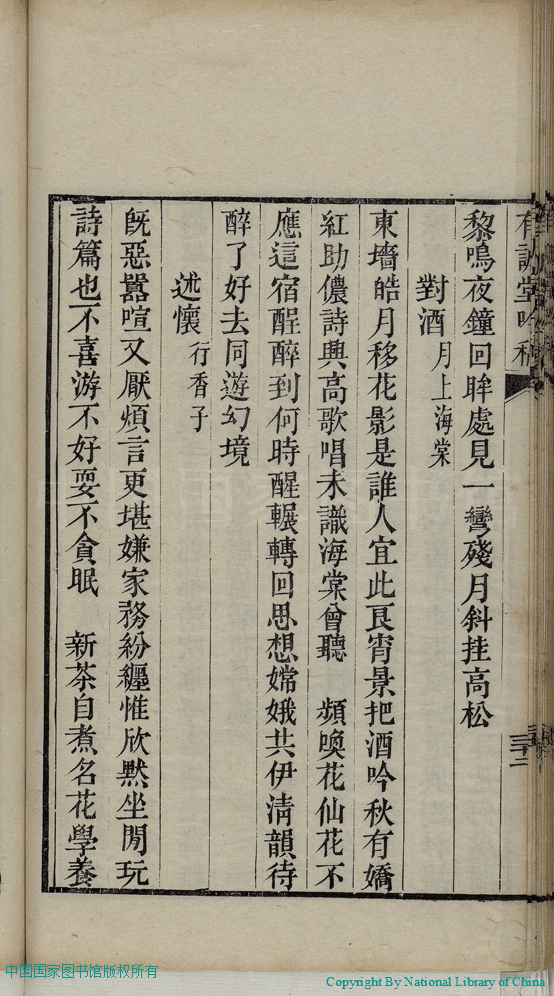 黎鳴夜鐘回眸處見一彎殘月斜挂高松
對酒 月上海棠
東墻皓月移花影是誰人宜此良宵景把酒吟秋有嬌
紅助儂詩興高歌唱未識海棠曾聽 頻喚花仙花不
應這宿酲醉到何時醒輾轉回思想嫦娥共伊淸韻待
醉了好去同遊幻境
述懷 行香子
旣惡囂喧又厭煩言更堪嫌家務紛纏惟欣默坐閒玩
詩篇也不喜游不好耍不貪眠 新茶自煮名花學養
中国国家图书馆版权所有
Copyright By National Library of China